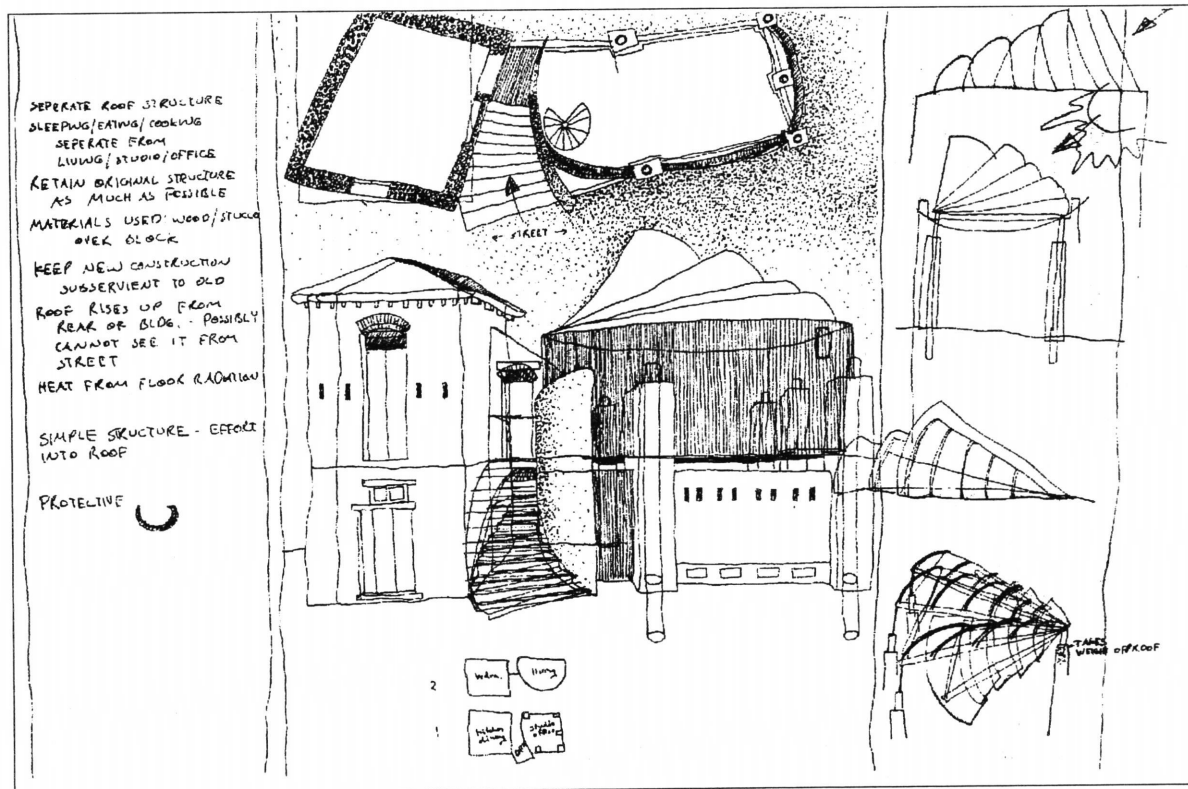 SEPERATE ROOF STRUCTURE
SLEEPING/EATING/COOKING
SEPERATE FROM
LIVING/STUDIO/OFFICE
RETAIN ORIGINAL STRUCTURE
AS MUCH AS POSSIBLE
MATERIALS USED: WOOD/STUCCO
OVER BLOCK
KEEP NEW CONSTRUCTION
SUBSERVIENT TO OLD
ROOF RISES UP FROM
REAR OF BLDG. - POSSIBLY
CANNOT SEE IT FROM
STREET
HEAT FROM FLOOR RADIATION
SIMPLE STRUCTURE - EFFORT
INTO ROOF
PROTECTIVE
STREET
TAKES
WEIGHT OF ROOF
2
bdrm.
living
1
kitchen
dining
studio
office